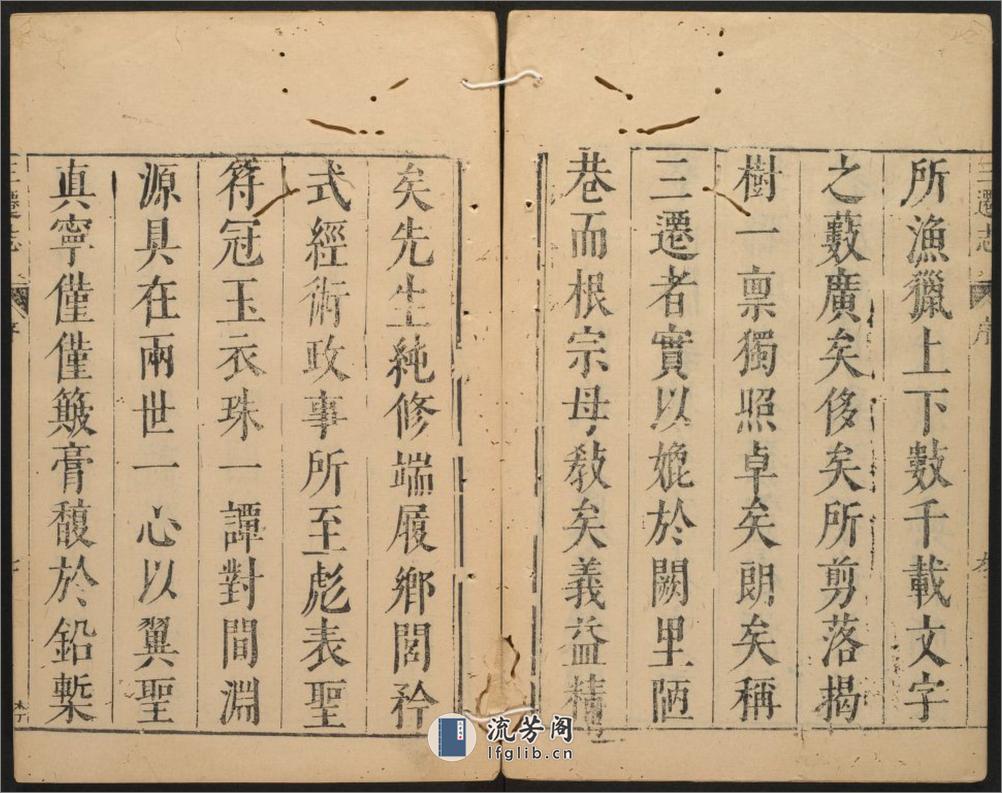 三遷志
序
所漁獵上下數千載文字
之藪廣矣侈矣所剪落揭
樹一稟獨照卓矣朗矣稱
三遷者實以媲於闕里陋
巷而根宗母教矣義益精
矣先生純修端履鄉閭矜
式經術政事所至彪表聖
符冠玉衣珠一譚對間淵
源具在兩世一心以翼聖
真寧僅僅簸膏馥於鉛槧
三遷志
序
流芳阁
lfglib.cn